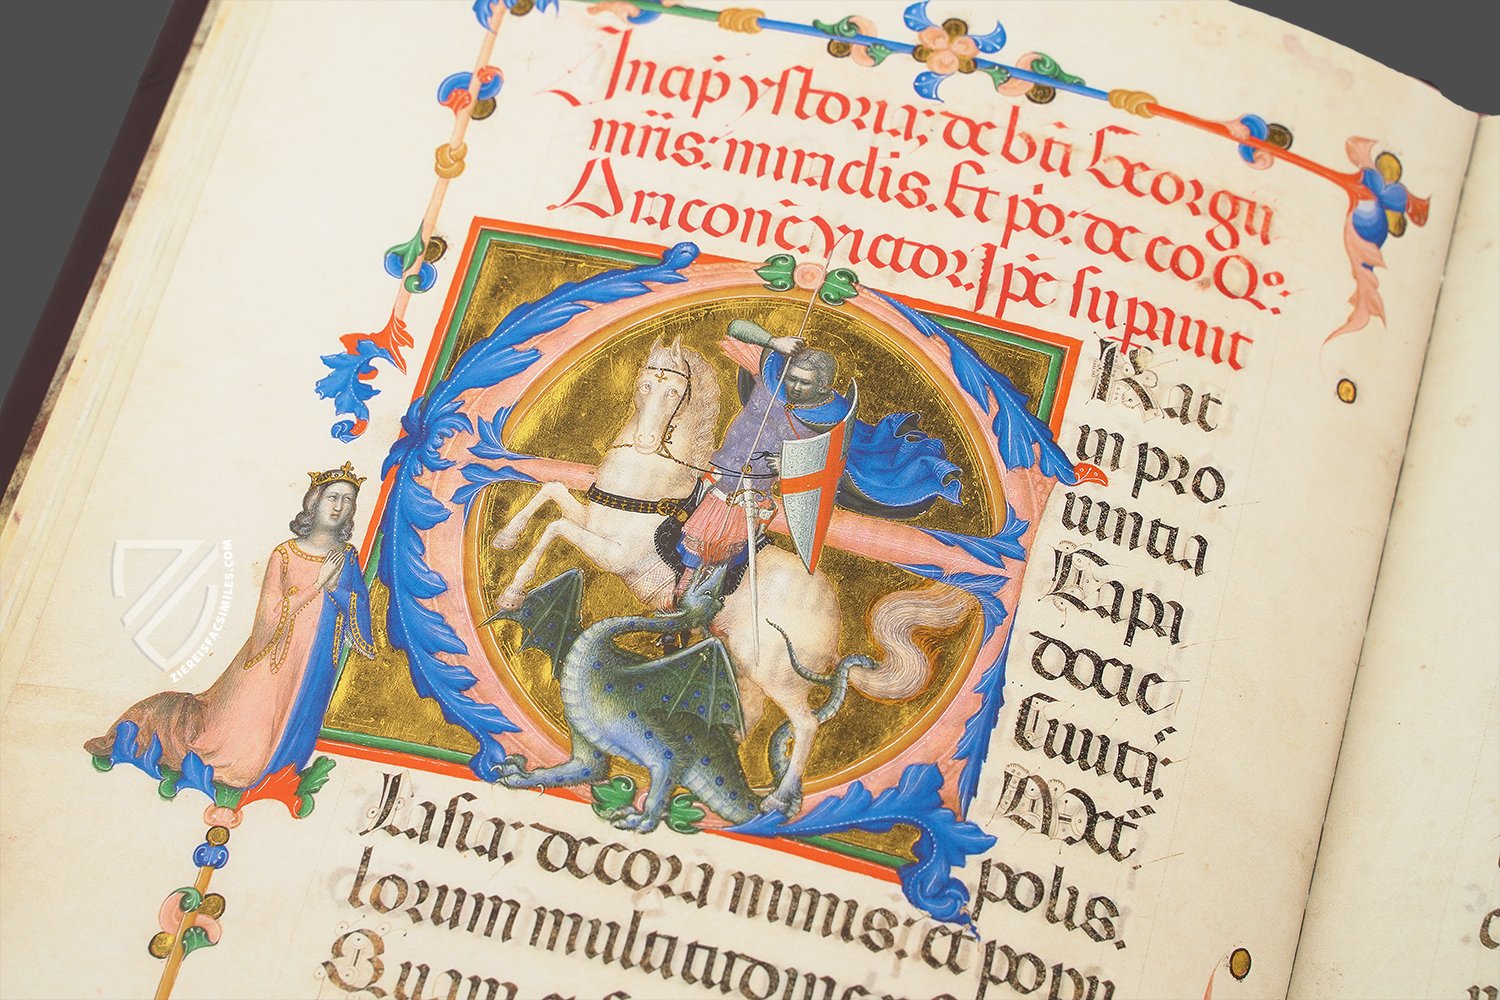 Incip ystoria; de bti Georgii
mris: miraclis. Et po: de eo. Qo:
Draconē. victor. Ipē supauit
Rat
in pro
uintia
Capi
docie
Ciuita:
polis.
Lasia: decora nimis: et popu
lorum multitudine
Quam
ZIEREISFACSIMILES.COM